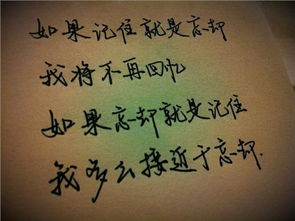 如果记住就是忘却
我将不再回忆
如果忘却就是记住
我多么接近于忘却.